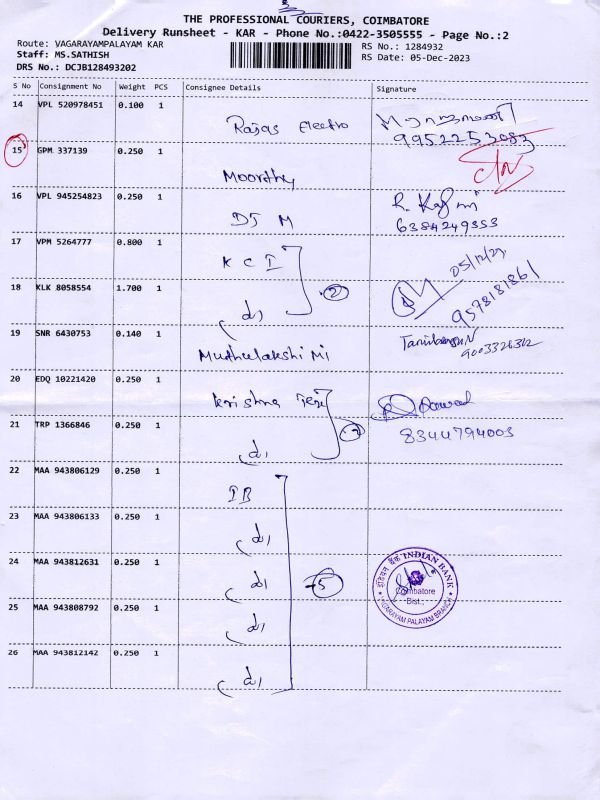 THE PROFESSIONAL COURIERS, COIMBATORE
Delivery Runsheet - KAR - Phone No.:0422-3505555 - Page No.:2
Route: VAGARAYAMPALAYAM KAR
RS No.: 1284932
Staff: MS.SATHISH
RS Date: 05-Dec-2023
DRS No.: DCJB128493202
S No Consignment No Weight PCS Consignee Details Signature
14 VPL 520978451 0.100 1 Rajas Electro
9952253083
15 GPM 337139 0.250 1 Moorthy
16 VPL 945254823 0.250 1 DJ M
6384249353
17 VPM 5264777 0.800 1 K C I
05/12/23
18 KLK 8058554 1.700 1
2
9578181861
19 SNR 6430753 0.140 1 Muthulakshimi
9003326312
20 EDQ 10221420 0.250 1 Krishna
21 TRP 1366846 0.250 1
2
8344794003
22 MAA 943806129 0.250 1 IB
23 MAA 943806133 0.250 1
24 MAA 943812631 0.250 1
5
25 MAA 943808792 0.250 1
26 MAA 943812142 0.250 1
इंडियन बैंक INDIAN BANK
Coimbatore
Dist.,
VAGARAYAM PALAYAM BRANCH